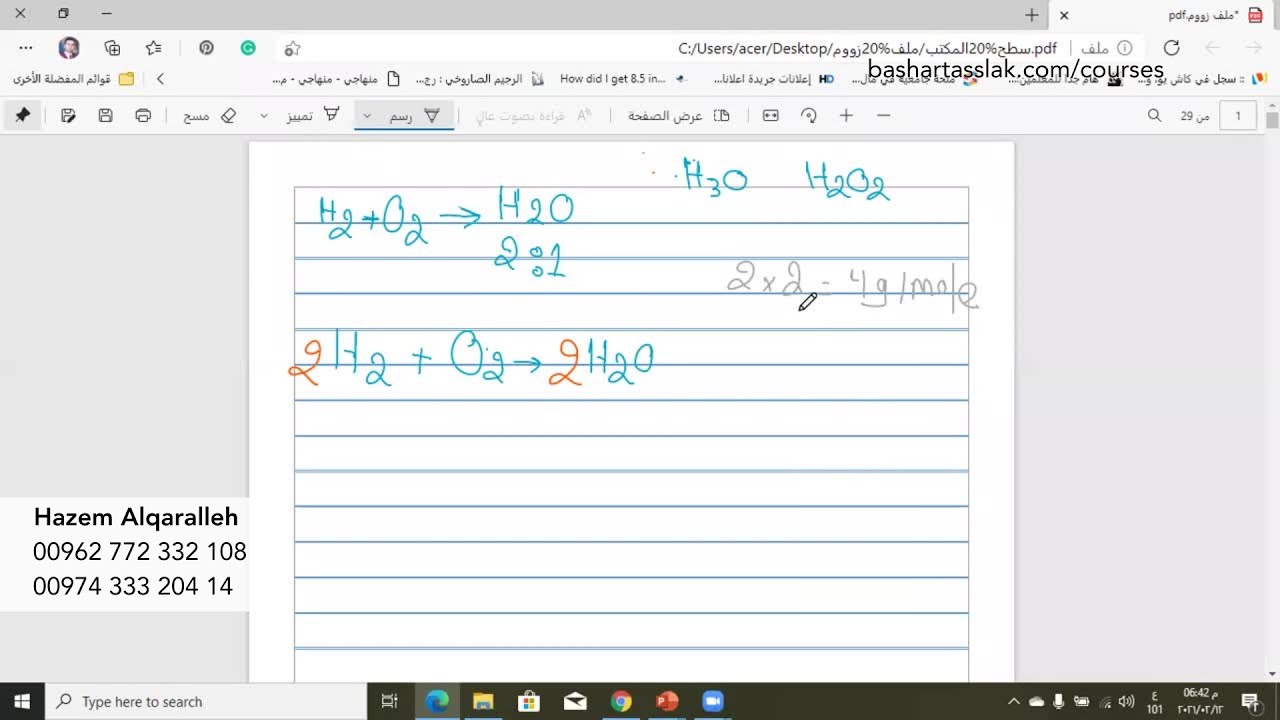 *ملف زووم.pdf
C:/Users/acer/Desktop/سطح%20المكتب/ملف%20زووم.pdf
ملف
bashartasslak.com/courses
قوائم المفضلة الأخرى
منهاجي - منهاجي - م...
الرجيم الصاروخي : رج...
How did I get 8.5 in...
إعلانات جريدة اعلانا...
HD
منحة جامعية في مال...
هام جدا للمعلمين...
:: سجل في كاش يو، و...
مسح
تمييز
رسم
قراءة بصوت عالٍ
عرض الصفحة
من 29
1
H3O H2O2
H2+O2 → H2O
2:1
2×2 = 4g/mole
2H2 + O2 → 2H2O
Hazem Alqaralleh
00962 772 332 108
00974 333 204 14
Type here to search
ع
101
06:42 م
٢٠٢١/٠٢/١٢